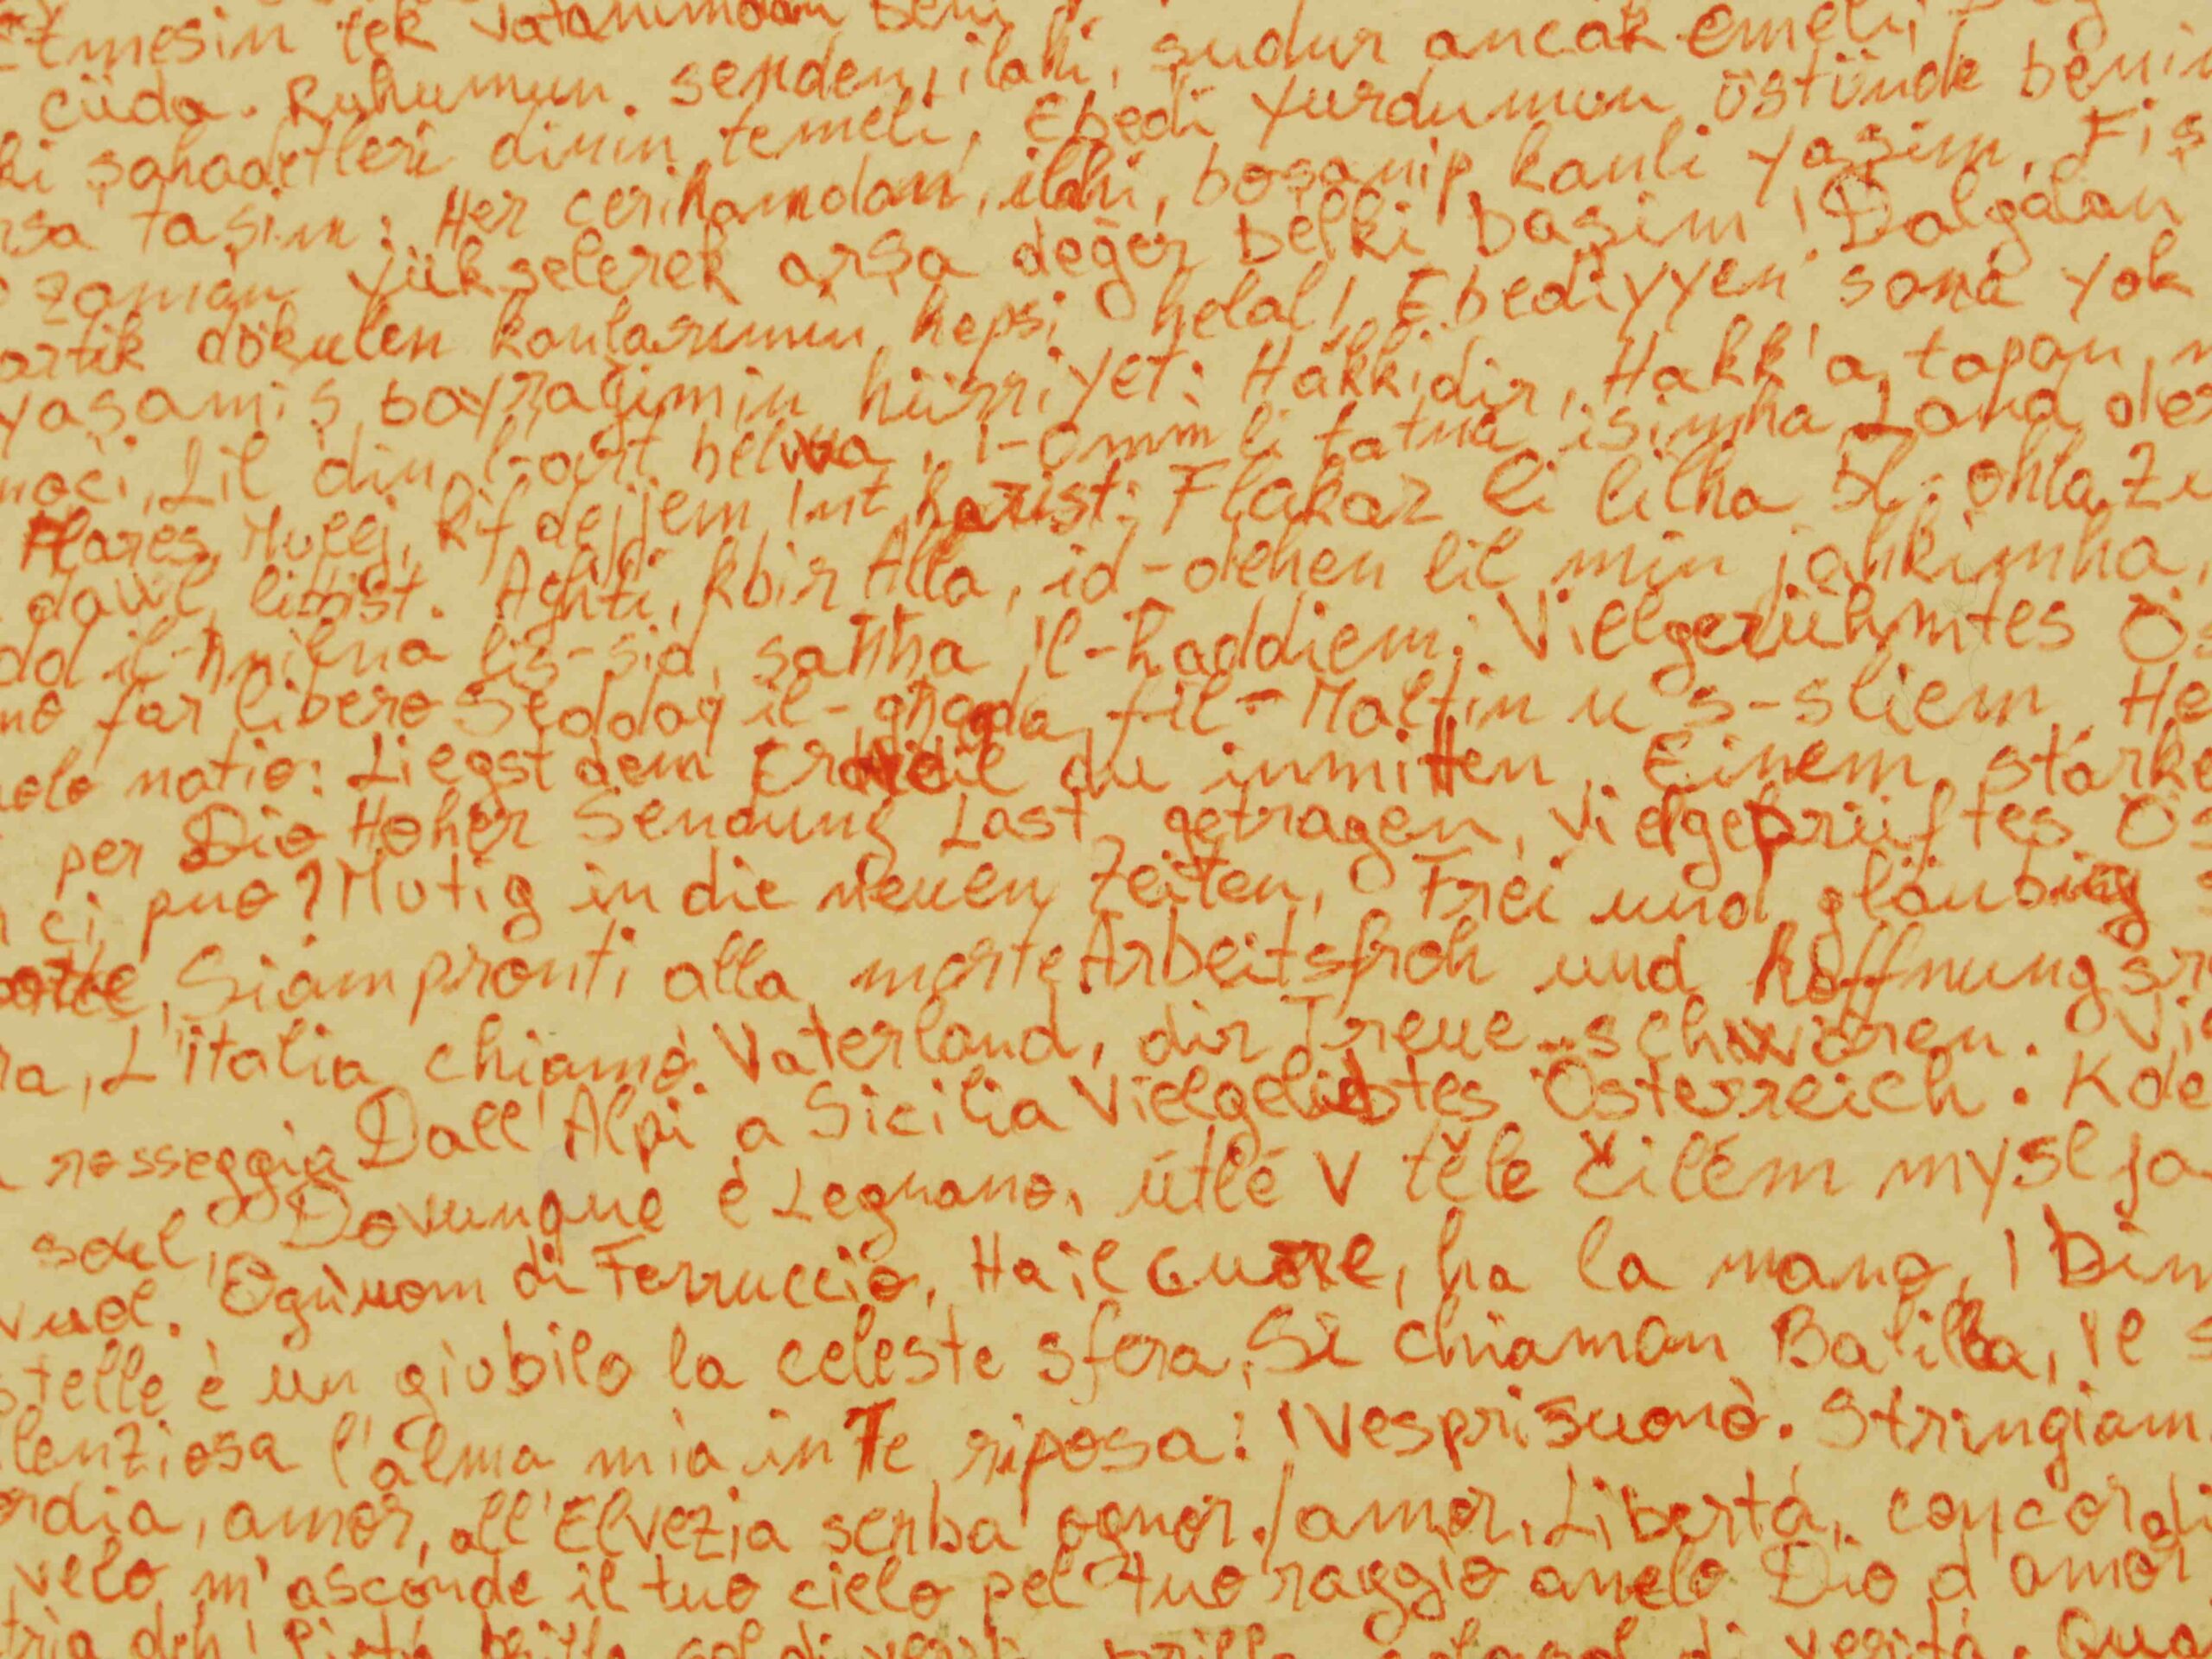 Etmesin tek vatanımdan beni
cüda. Ruhumun senden, ilahi, sudur ancak emeli;
ki şahadetleri dinin temeli, Ebedi yurdumun üstünde benim
rsa taşim; Her cerihamdan, ilahi, boşanip kanli yaşim, Fiş
o zaman yükselerek arşa değer belki başim! Dalgalan
artik dökülen kanlarımın hepsi helal! Ebediyyen sana yok
yaşamiş bayrağimin hürriyet; Hakkidir, Hakk'a tapan, m
naći, Lil din l-art helwa, l-Omm li tatna isimha Land der
Hares, Mulej, kif dejjem Int harist; Ftakar li lilha bl-ohla
dawl libbist. Aghti, kbir Alla, id-dehen lil min jahkimha,
dd il-hniena lis-sid, sahha 'l-haddiem; Vielgerühmtes Ös
mo far libero Seddaq il-ghaqda fil-Maltin u s-sliem. He
uolo natio; Liegst dem Erdteil du inmitten, Einem starke
per Dio Hoher Sendung Last getragen, Vielgeprüftes Ös
n ci può? Mutig in die neuen Zeiten, Frei und gläubig s
Siam pronti alla morte Arbeitsfroh und hoffnungsr
ra, L'italia chiamò. Vaterland, dir Treue schwören. Vie
rosseggia Dall'Alpi a Sicilia Vielgeliebtes Österreich. Kde
Dovunque è Legnano, útlé v těle čilém mysl ja
vud. Ogn'uom di Ferruccio, Ha il cuore, ha la mano, I bim
stelle è un giubilo la celeste sfera, Si chiaman Balilla, Il s
lenziosa l'alma mia in Te riposa: I Vespri suonò. Stringiam
ordia, amor, all'Elvezia serba ognor./amor, Libertà, concordi
velo m'asconde il tuo cielo pel tuo raggio anelo Dio d'amor
tria deh! Pietà di verità. Qua